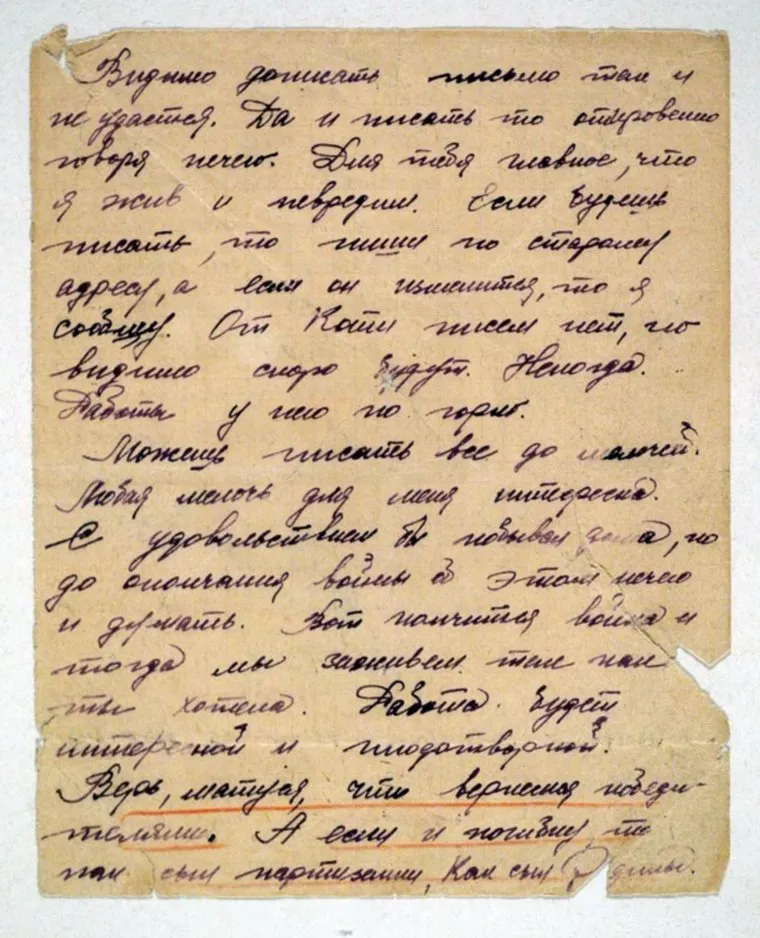 Видимо дописать письмо так и
не удастся. Да и писать то откровенно
говоря нечего. Для тебя главное, что
я жив и невредим. Если будешь
писать, то пиши по старому
адресу, а если он изменится, то я
сообщу. От Кати писем нет, но
видимо скоро будут. Некогда.
Работы у него по горло.
Можешь писать все до мелочей.
Любая мелочь для меня интересна.
С удовольствием бы побывал дома, но
до окончания войны о этом нечего
и думать. Вот кончится война и
тогда мы заживем так как
ты хотела. Работа будет
интересной и плодотворной.
Верь, матуся, что вернемся победи-
телями. А если и погибну, то
как сын партизанки, как сын Родины.